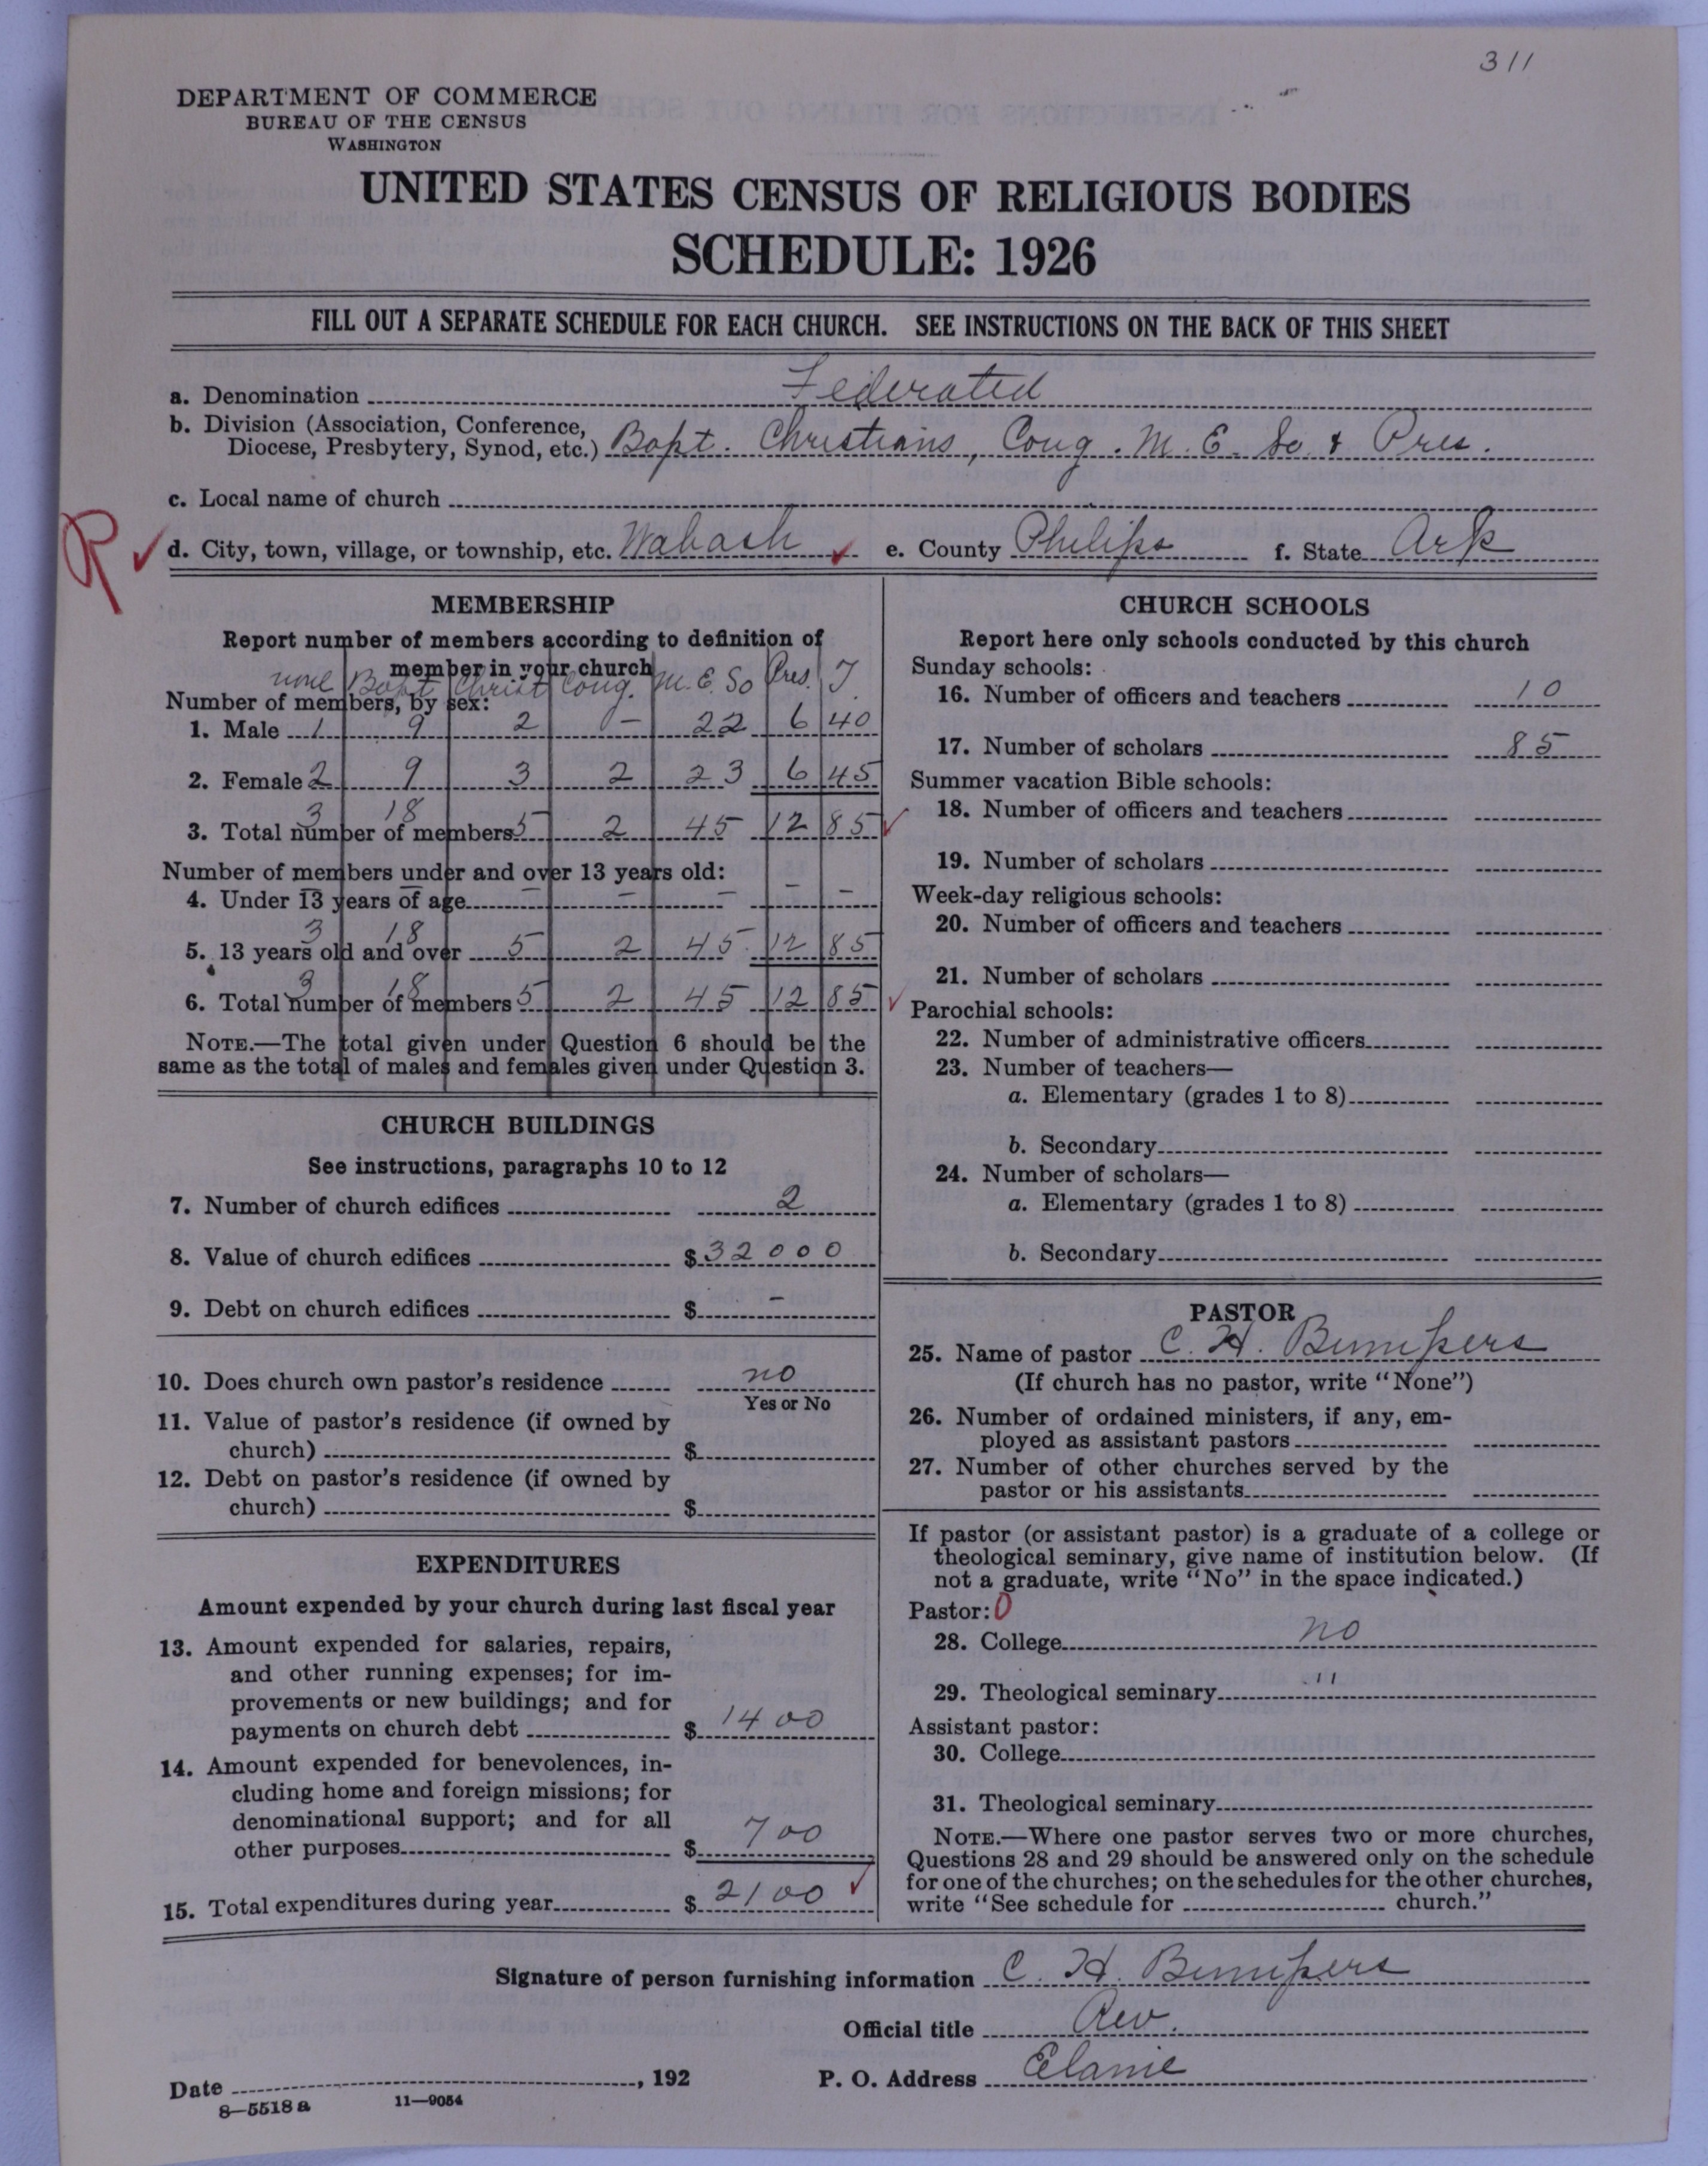 311
DEPARTMENT OF COMMERCE
BUREAU OF THE CENSUS
WASHINGTON
UNITED STATES CENSUS OF RELIGIOUS BODIES
SCHEDULE: 1926
FILL OUT A SEPARATE SCHEDULE FOR EACH CHURCH. SEE INSTRUCTIONS ON THE BACK OF THIS SHEET
a. Denomination Federated
b. Division (Association, Conference,
Diocese, Presbytery, Synod, etc.) Bapt. Christians, Cong. M. E. So. & Pres.
c. Local name of church
R ✓ d. City, town, village, or township, etc. Wabash ✓ e. County Philips f. State Ark
MEMBERSHIP
Report number of members according to definition of
member in your church
none Bapt Christ Cong. M. E. So Pres. T.
Number of members, by sex:
1. Male 1 9 2 – 22 6 40
2. Female 2 9 3 2 23 6 45
3. Total number of members 3 18 5 2 45 12 85 ✓
Number of members under and over 13 years old:
4. Under 13 years of age – – – – – – –
5. 13 years old and over 3 18 5 2 45 12 85
6. Total number of members 3 18 5 2 45 12 85 ✓
NOTE.—The total given under Question 6 should be the
same as the total of males and females given under Question 3.
CHURCH BUILDINGS
See instructions, paragraphs 10 to 12
7. Number of church edifices 2
8. Value of church edifices $ 32000
9. Debt on church edifices $ –
10. Does church own pastor's residence no
Yes or No
11. Value of pastor's residence (if owned by
church) $
12. Debt on pastor's residence (if owned by
church) $
EXPENDITURES
Amount expended by your church during last fiscal year
13. Amount expended for salaries, repairs,
and other running expenses; for im-
provements or new buildings; and for
payments on church debt $ 1400
14. Amount expended for benevolences, in-
cluding home and foreign missions; for
denominational support; and for all
other purposes $ 700
15. Total expenditures during year $ 2100 ✓
CHURCH SCHOOLS
Report here only schools conducted by this church
Sunday schools:
16. Number of officers and teachers 10
17. Number of scholars 85
Summer vacation Bible schools:
18. Number of officers and teachers
19. Number of scholars
Week-day religious schools:
20. Number of officers and teachers
21. Number of scholars
Parochial schools:
22. Number of administrative officers
23. Number of teachers—
a. Elementary (grades 1 to 8)
b. Secondary
24. Number of scholars—
a. Elementary (grades 1 to 8)
b. Secondary
PASTOR
25. Name of pastor C. H. Bumpers
(If church has no pastor, write "None")
26. Number of ordained ministers, if any, em-
ployed as assistant pastors
27. Number of other churches served by the
pastor or his assistants
If pastor (or assistant pastor) is a graduate of a college or
theological seminary, give name of institution below. (If
not a graduate, write "No" in the space indicated.)
Pastor: 0
28. College no
29. Theological seminary "
Assistant pastor:
30. College
31. Theological seminary
NOTE.—Where one pastor serves two or more churches,
Questions 28 and 29 should be answered only on the schedule
for one of the churches; on the schedules for the other churches,
write "See schedule for church."
Signature of person furnishing information C. H. Bumpers
Official title Rev.
Date , 192 P. O. Address Elanie
8—5518 a 11—9054